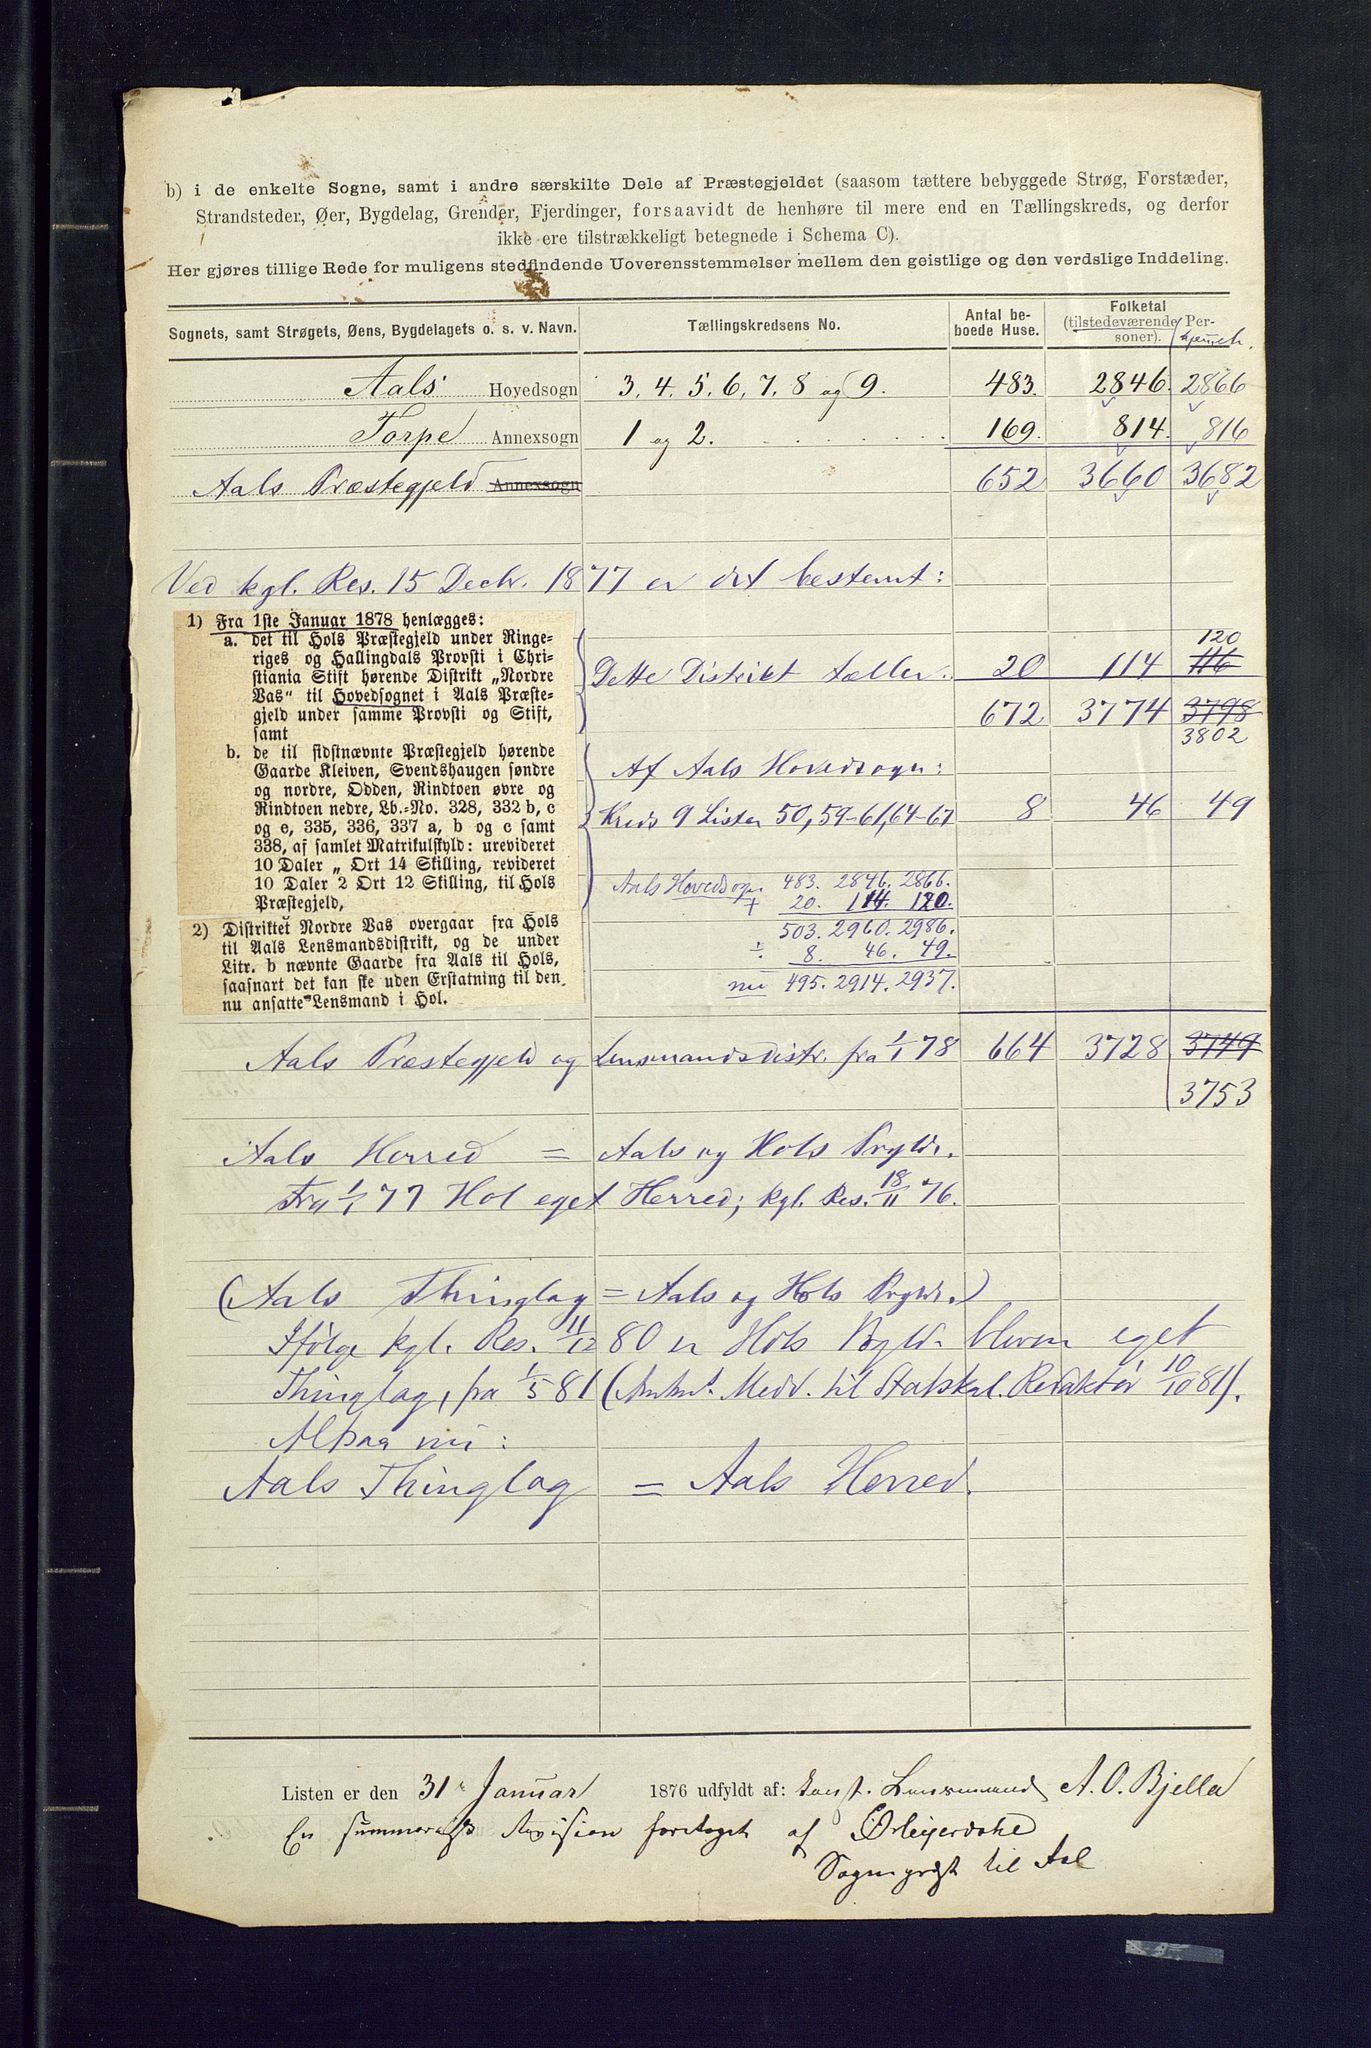 b) i de enkelte Sogne, samt i andre særskilte Dele af Præstegjeldet (saasom tættere bebyggede Strøg, Forstæder,
Strandsteder, Øer, Bygdelag, Grender, Fjerdinger, forsaavidt de henhøre til mere end en Tællingskreds, og derfor
ikke ere tilstrækkeligt betegnede i Schema C).
Her gjøres tillige Rede for muligens stedfindende Uoverensstemmelser mellem den geistlige og den verdslige Inddeling.
Sognets, samt Strøgets, Øens, Bygdelagets o. s. v. Navn. Tællingskredsens No. Antal beboede Huse. Folketal (tilstedeværende Personer). hjemh.
Aals Hovedsogn 3, 4, 5, 6, 7, 8 og 9. 483. 2846. 2866
Torpe Annexsogn 1 og 2. 169. 814. 816
Aals Præstegjeld Annexsogn 652 3660 3682
Ved kgl. Res. 15 Decbr. 1877 er det bestemt:
1) Fra 1ste Januar 1878 henlægges:
a. det til Hols Præstegjeld under Ringe-
riges og Hallingdals Provsti i Chri-
stiania Stift hørende Distrikt „Nordre
Vas" til Hovedsognet i Aals Præste-
gjeld under samme Provsti og Stift,
samt
b. de til sidstnævnte Præstegjeld hørende
Gaarde Kleiven, Svendshaugen søndre
og nordre, Odden, Rindtoen øvre og
Rindtoen nedre, Lb.-No. 328, 332 b, c
og e, 335, 336, 337 a, b og c samt
338, af samlet Matrikulskyld: urevideret
10 Daler „ Ort 14 Skilling, revideret
10 Daler 2 Ort 12 Skilling, til Hols
Præstegjeld,
2) Distriktet Nordre Vas overgaar fra Hols
til Aals Lensmandsdistrikt, og de under
Litr. b nævnte Gaarde fra Aals til Hols,
saasnart det kan ske uden Erstatning til den
nu ansatte Lensmand i Hol.
120
Dette Distrikt tæller. 20 114 116
672 3774 3798
3802
Af Aals Hovedsogn:
Kreds 9 Lister 50, 59-61, 64-67 8 46 49
Aals Hovedsogn 483. 2846. 2866.
+ 20. 114. 120.
503. 2960. 2986.
÷ 8. 46. 49.
nu 495. 2914. 2937.
Aals Præstegjeld og Lensmandsdistr. fra 1/1 78 664 3728 3749
3753
Aals Herred = Aals og Hols Prgldr.
Fra 1/1 77 Hol eget Herred; kgl. Res. 18/11 76.
(Aals Thinglag = Aals og Hols Prgldr.)
Ifølge kgl. Res. 11/12 80 er Hols Pgld. bleven eget
Thinglag, fra 1/5 81 (Amtm. Medd. til Statskal. Redaktør 10/10 81).
Altsaa nu:
Aals Thinglag = Aals Herred.
Listen er den 31 Januar 1876 udfyldt af: konst. Lensmand A. O. Bjella
En summarisk Revision foretaget af
Sogneprest til Aal